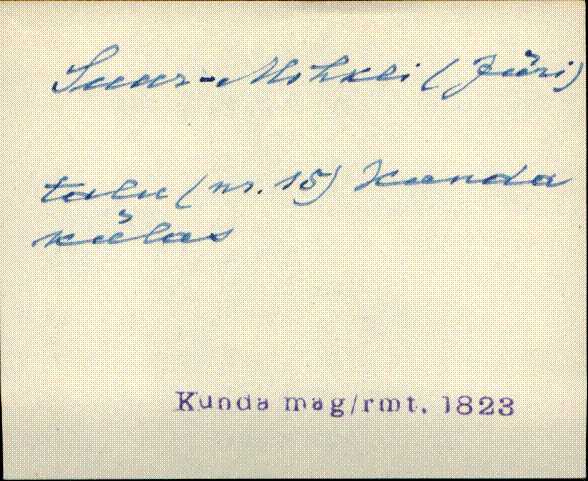 Suur-Mihkli (Jüri)
talu (nr. 15) Kunda
külas
Kunda mag/rmt. 1823